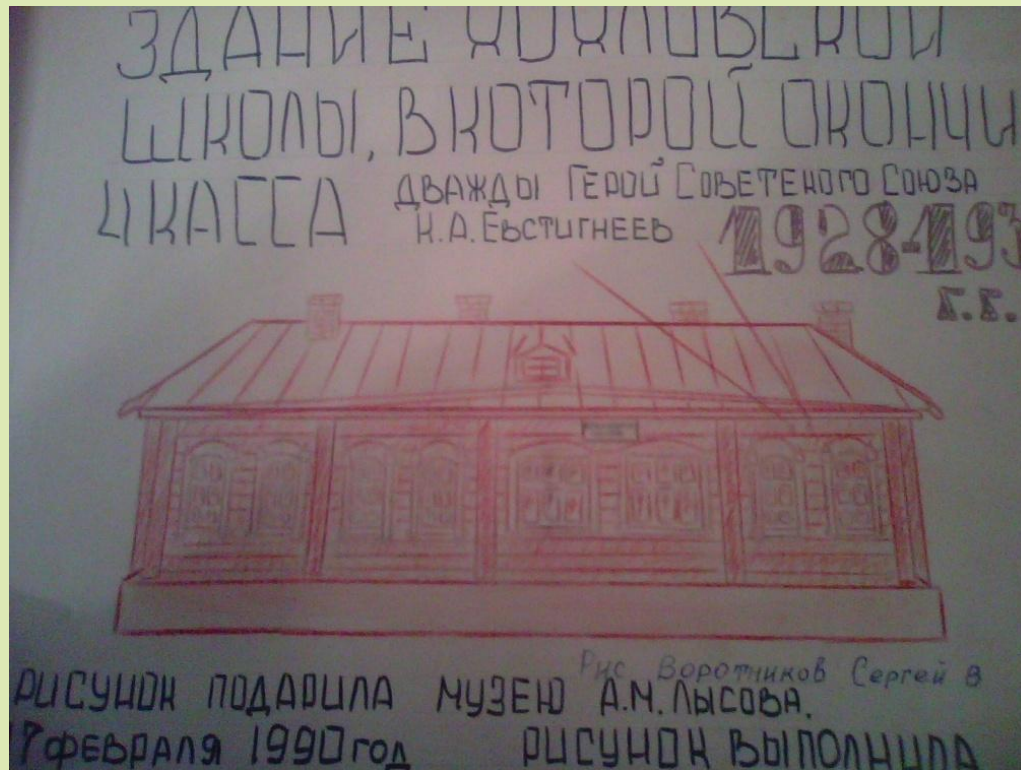 ЗДАНИЕ ХОХЛОВСКОЙ
ШКОЛЫ, В КОТОРОЙ ОКОНЧИ
4 КАССА ДВАЖДЫ ГЕРОЙ СОВЕТСКОГО СОЮЗА
К.А. ЕВСТИГНЕЕВ 1928-193
г.г.
Рис Воротников Сергей 8
РИСУНОК ПОДАРИЛА МУЗЕЮ А.М. ЛЫСОВА.
17 ФЕВРАЛЯ 1990 год РИСУНОК ВЫПОЛНИЛА